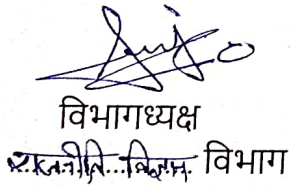 विभागध्यक्ष
राजनीति विज्ञान विभाग